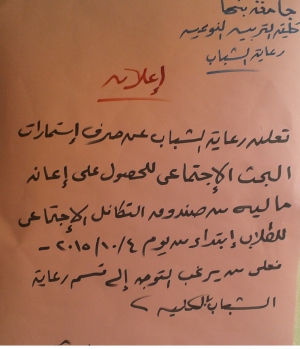 جامعة بنها
كلية التربية النوعية
رعاية الشباب
إعلان
تعلن رعاية الشباب عن صرف إستمارات
البحث الإجتماعى للحصول على إعانه
ماليه من صندوق التكافل الإجتماعى
للطلاب إبتداء من يوم ٢٠١٥/١٠/٤ -
فعلى من يرغب التوجه إلى قسم رعاية
الشباب بالكليه